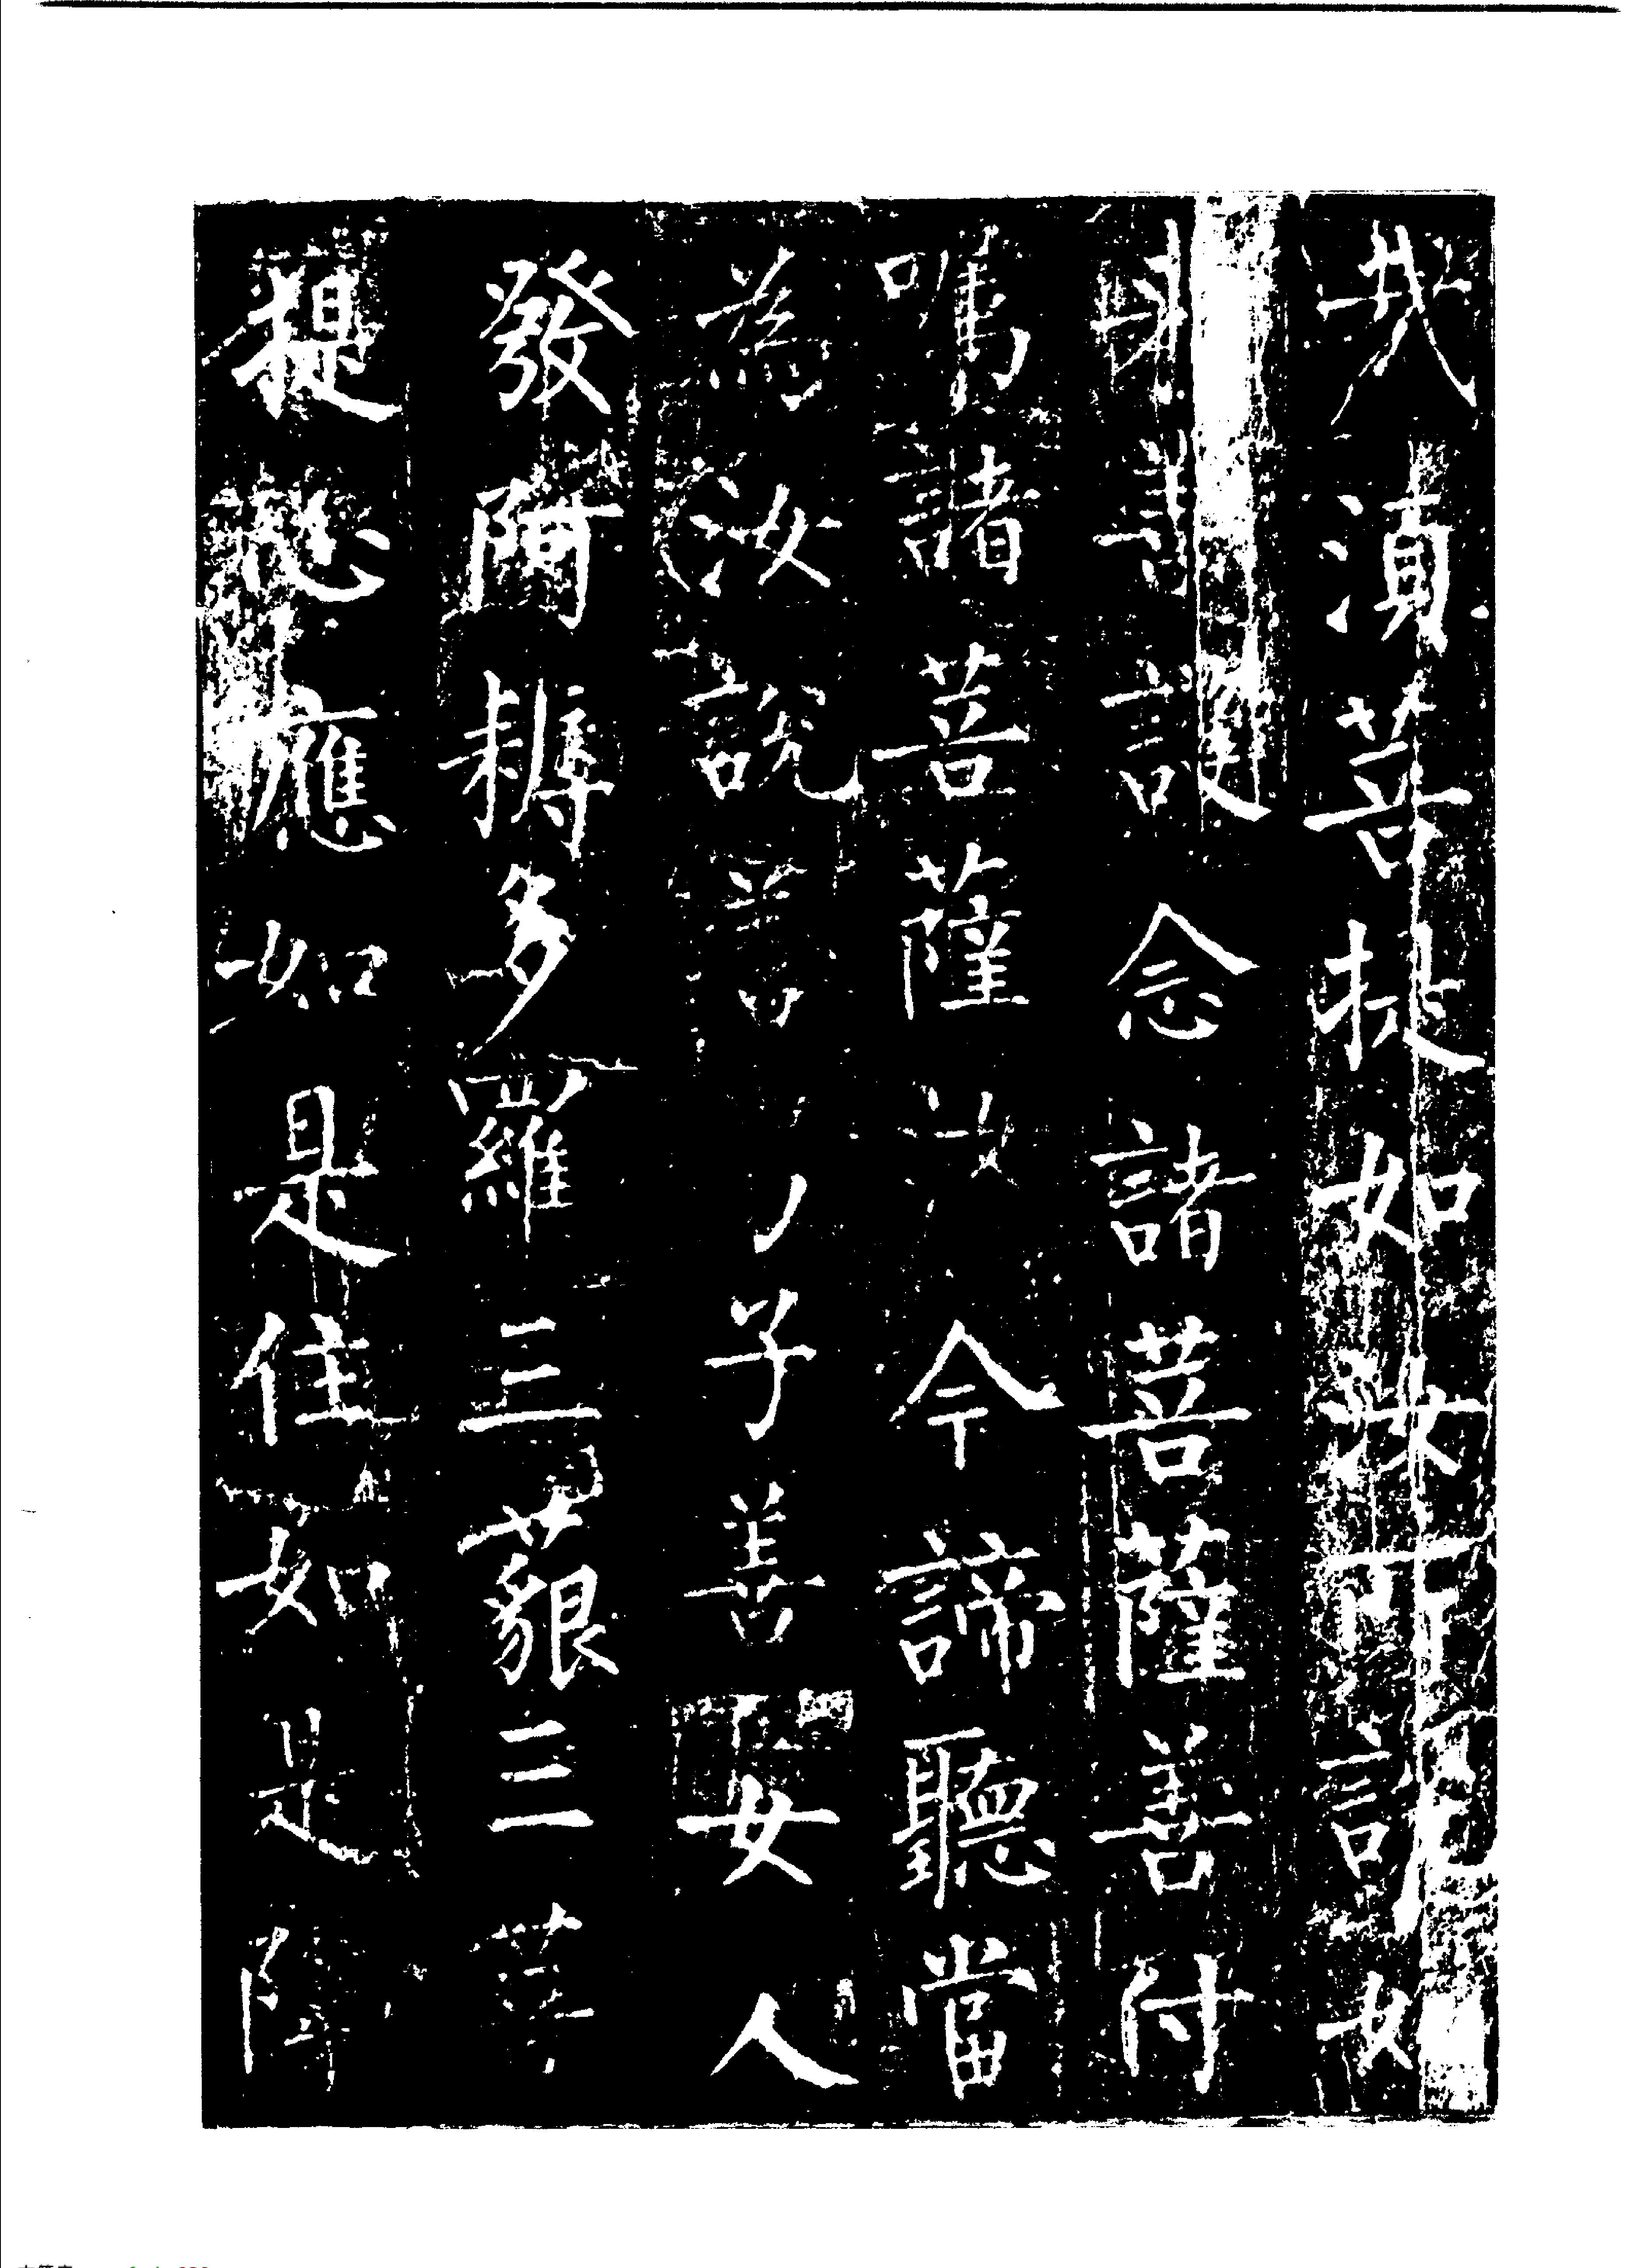 哉湏菩提如汝所説如
來善護念諸菩薩善付
嘱諸菩薩汝今諦聽當
為汝説善子善女人
發阿耨多羅三藐三菩
提心應如是住如是降